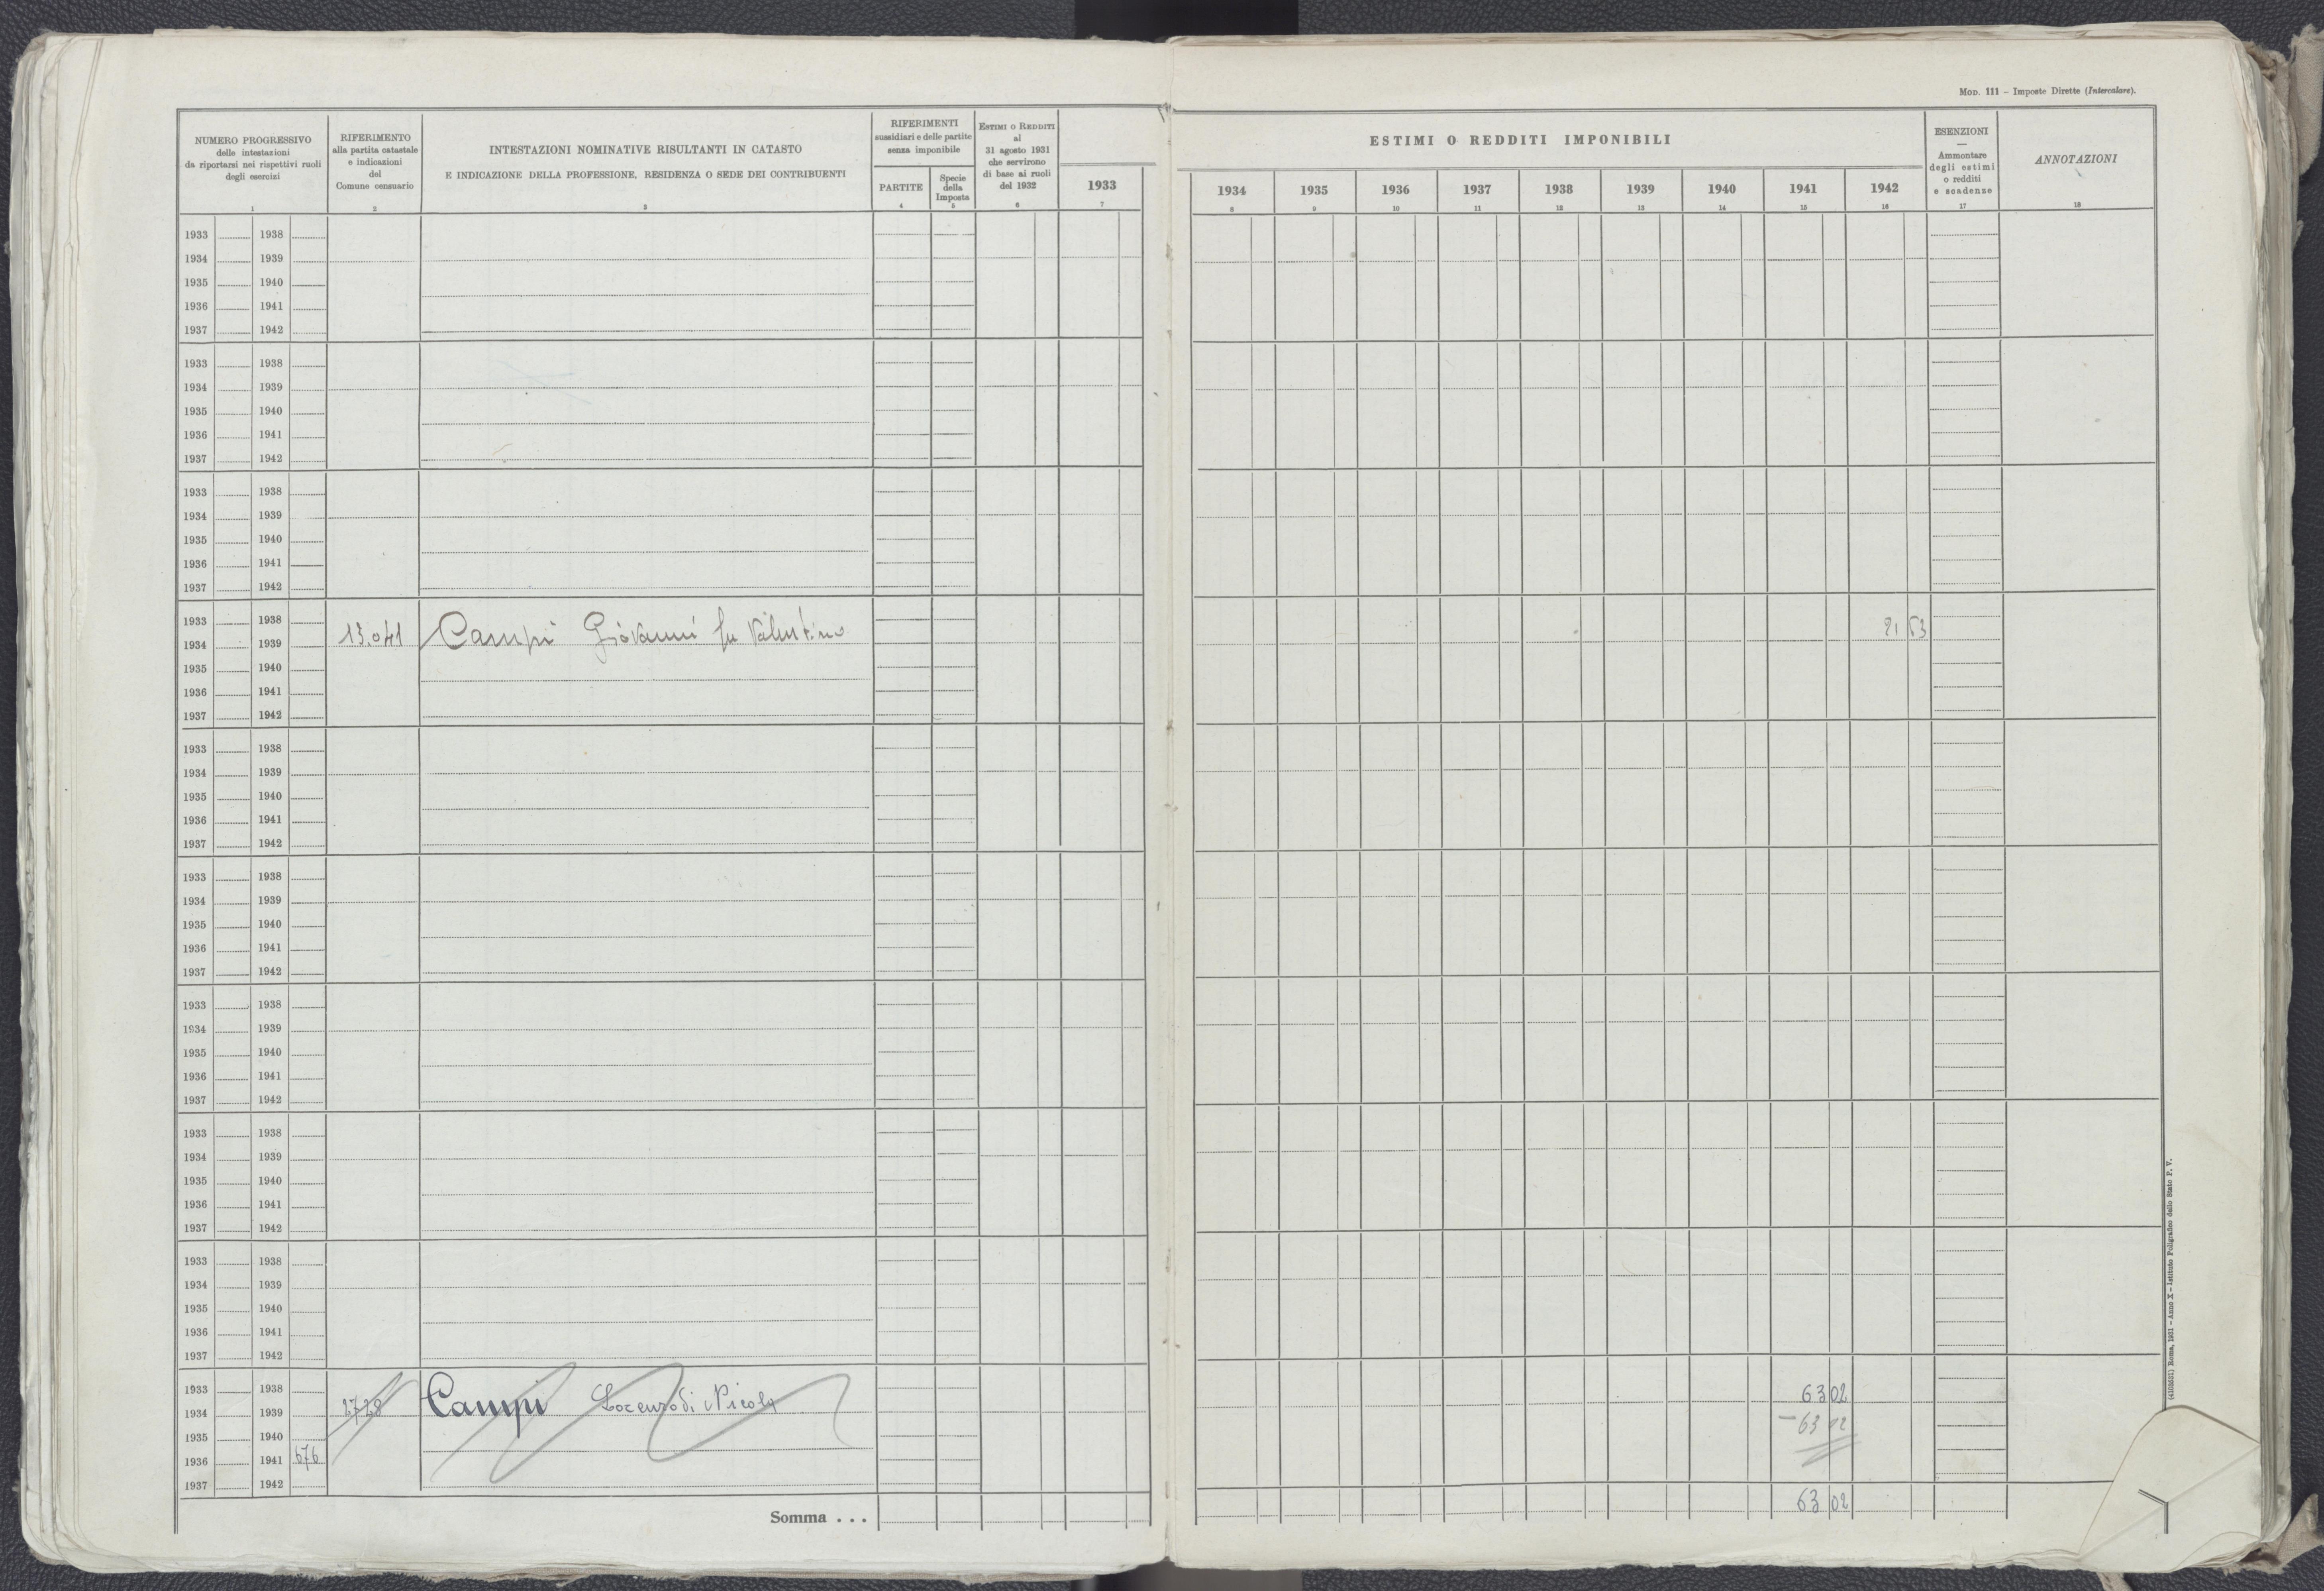 Mod. 111 – Imposte Dirette (Intercalare).
NUMERO PROGRESSIVO
delle intestazioni
da riportarsi nei rispettivi ruoli
degli esercizi
1
RIFERIMENTO
alla partita catastale
e indicazioni
del
Comune censuario
2
INTESTAZIONI NOMINATIVE RISULTANTI IN CATASTO
E INDICAZIONE DELLA PROFESSIONE, RESIDENZA O SEDE DEI CONTRIBUENTI
3
RIFERIMENTI
sussidiari e delle partite
senza imponibile
PARTITE
4
Specie
della
Imposta
5
Estimi o Redditi
al
31 agosto 1931
che servirono
di base ai ruoli
del 1932
6
1933
7
ESTIMI O REDDITI IMPONIBILI
1934 1935 1936 1937 1938 1939 1940 1941 1942
8 9 10 11 12 13 14 15 16
ESENZIONI
—
Ammontare
degli estimi
o redditi
e scadenze
17
ANNOTAZIONI
18
1933 1938
1934 1939
1935 1940
1936 1941
1937 1942
1933 1938
1934 1939
1935 1940
1936 1941
1937 1942
1933 1938
1934 1939
1935 1940
1936 1941
1937 1942
1933 1938
1934 1939 13.041 Campi Giovanni fu Valentino 63
1935 1940
1936 1941
1937 1942
1933 1938
1934 1939
1935 1940
1936 1941
1937 1942
1933 1938
1934 1939
1935 1940
1936 1941
1937 1942
1933 1938
1934 1939
1935 1940
1936 1941
1937 1942
1933 1938
1934 1939
1935 1940
1936 1941
1937 1942
1933 1938
1934 1939
1935 1940
1936 1941
1937 1942
1933 1938 63 02
1934 1939 2728 Campi Lorenzo di Nicola – 63 02
1935 1940
1936 1941 676
1937 1942
Somma . . . 63 02
(4103231) Roma, 1931 – Anno X – Istituto Poligrafico dello Stato P. V.